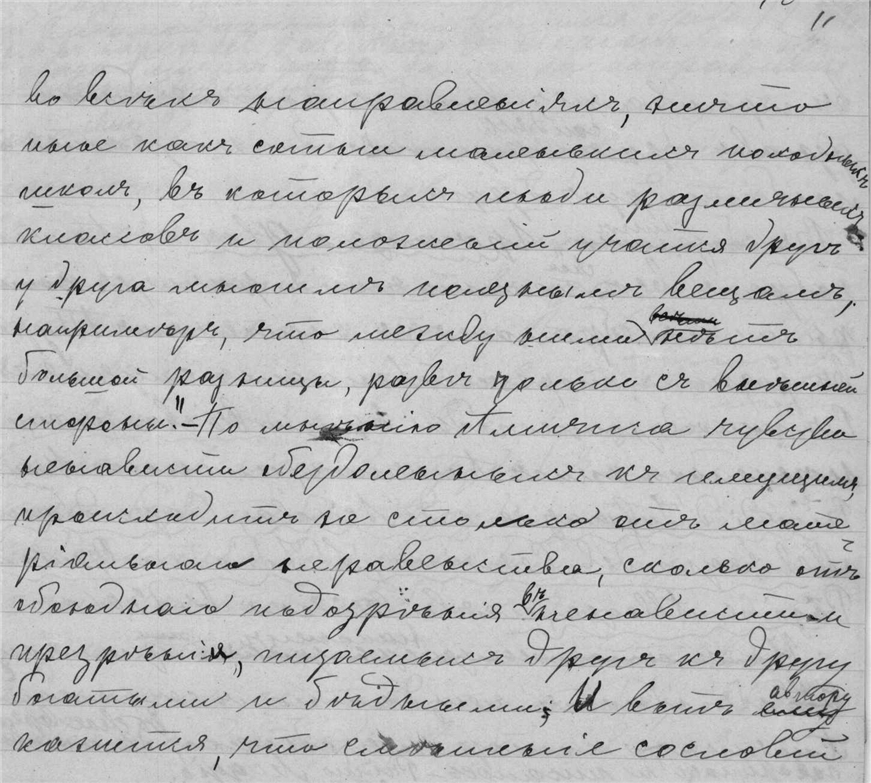 11
во всѣхъ направленіяхъ, ничто
иное какъ сотни маленькихъ походныхъ
школъ, въ которыхъ люди различныхъ
классовъ и положеній учатся другъ
у друга многимъ полезнымъ вещамъ,
напримѣръ, что между ними нѣтъ
большой разницы, развѣ только съ внѣшней
стороны." – По мнѣнію Амичиса чувство
ненависти обездоленныхъ къ имущимъ,
происходитъ не столько отъ мате-
ріальнаго неравенства, сколько отъ
обоюднаго подозрѣнія въ ненависти и
презрѣніи, питаемыхъ другъ къ другу
богатыми и бѣдными; И вотъ автору
кажется, что смѣшеніе сословій